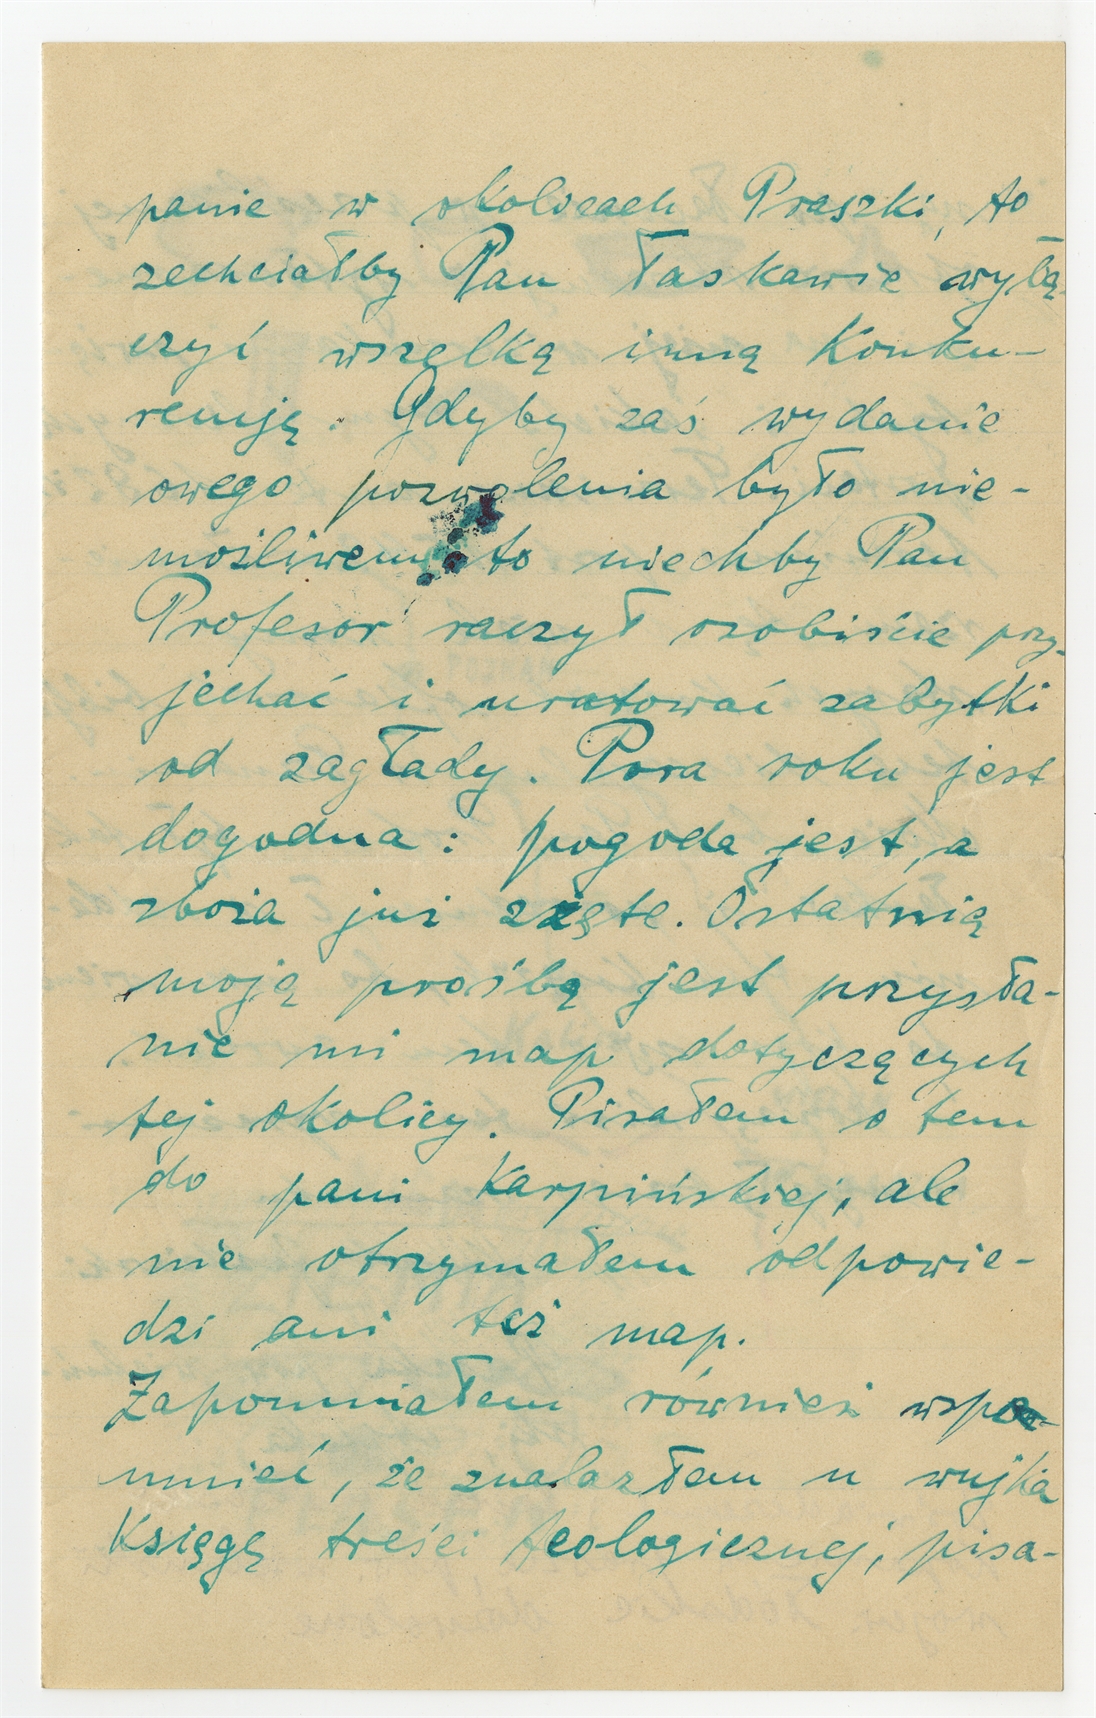 panie w okolicach Praszki, to
zechciałby Pan łaskawie wyłą-
czyć wszelką inną konku-
rencję. Gdyby zaś wydanie
owego pozwolenia było nie-
możliwem, to niechby Pan
Profesor raczył osobiście przy-
jechać i uratować zabytki
od zagłady. Pora roku jest
dogodna: pogoda jest, a
zboża już zżęte. Ostatnią
moją prośbą jest przysła-
nie mi map dotyczących
tej okolicy. Pisałem o tem
do pani Karpińskiej, ale
nie otrzymałem odpowie-
dzi ani też map.
Zapomniałem również wspo-
mnieć, że znalazłem u wujka
Księgę treści teologicznej, pisa-